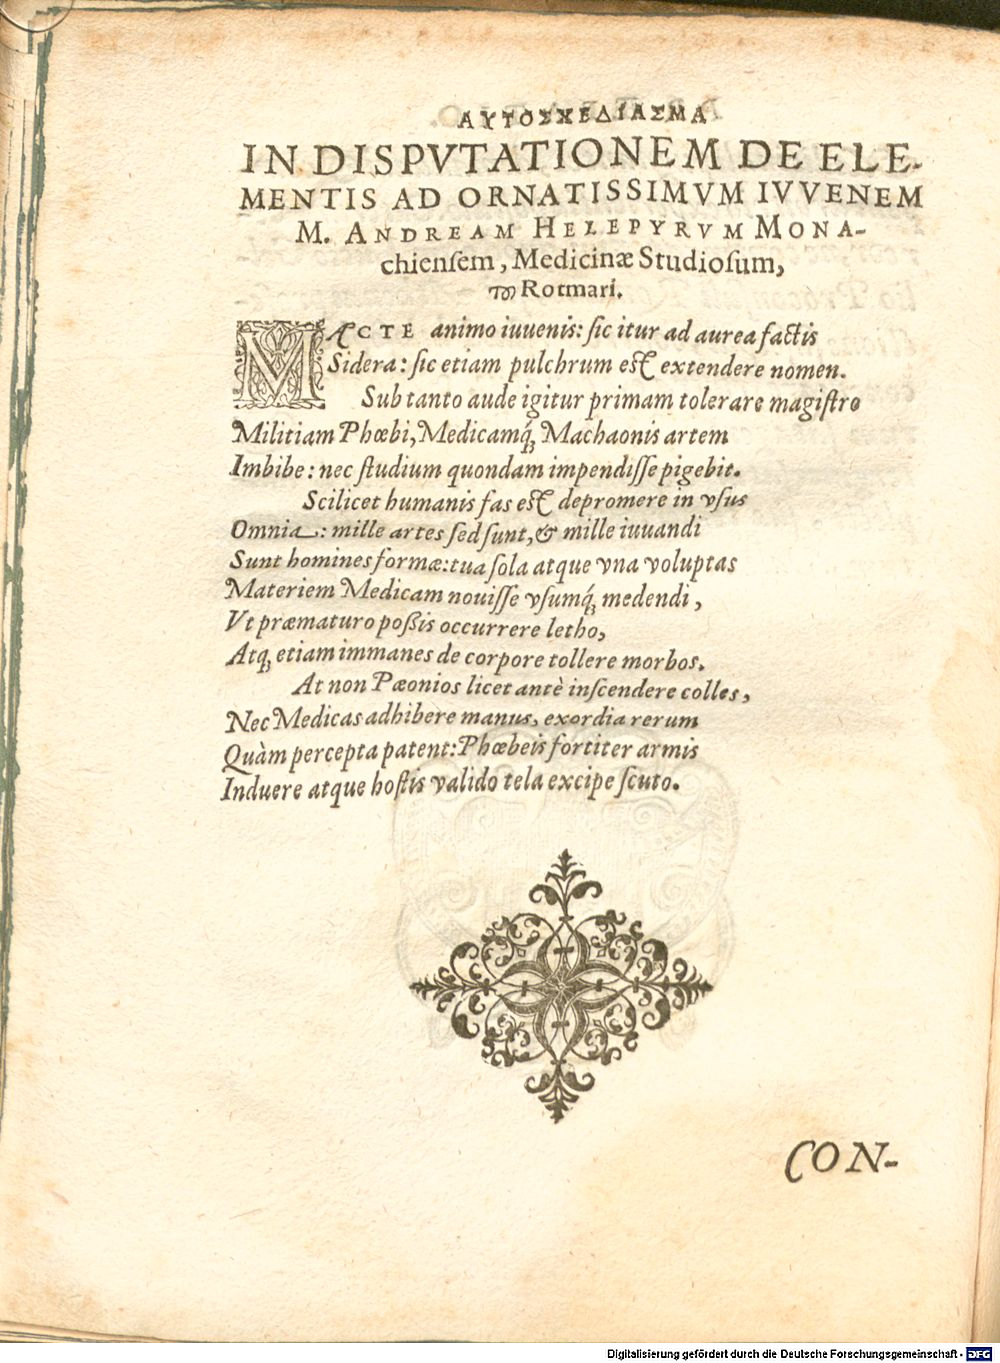 ΑΥΤΟΣΧΕΔΙΑΣΜΑ
IN DISPVTATIONEM DE ELE-
MENTIS AD ORNATISSIMVM IVVENEM
M. ANDREAM HELEPYRVM MONA-
chiensem, Medicinæ Studiosum,
τȣ͂ Rotmari.
MACTE animo iuuenis: sic itur ad aurea factis
Sidera: sic etiam pulchrum est extendere nomen.
Sub tanto aude igitur primam tolerare magistro
Militiam Phœbi, Medicamq́; Machaonis artem
Imbibe: nec studium quondam impendisse pigebit.
Scilicet humanis fas est depromere in vsus
Omnia: mille artes sed sunt, & mille iuuandi
Sunt homines formæ: tua sola atque vna voluptas
Materiem Medicam nouisse vsumq́; medendi,
Vt præmaturo possis occurrere letho,
Atq; etiam immanes de corpore tollere morbos.
At non Pæonios licet antè inscendere colles,
Nec Medicas adhibere manus, exordia rerum
Quàm percepta patent: Phœbeis fortiter armis
Induere atque hostis valido tela excipe scuto.
CON-
Digitalisierung gefördert durch die Deutsche Forschungsgemeinschaft - DFG